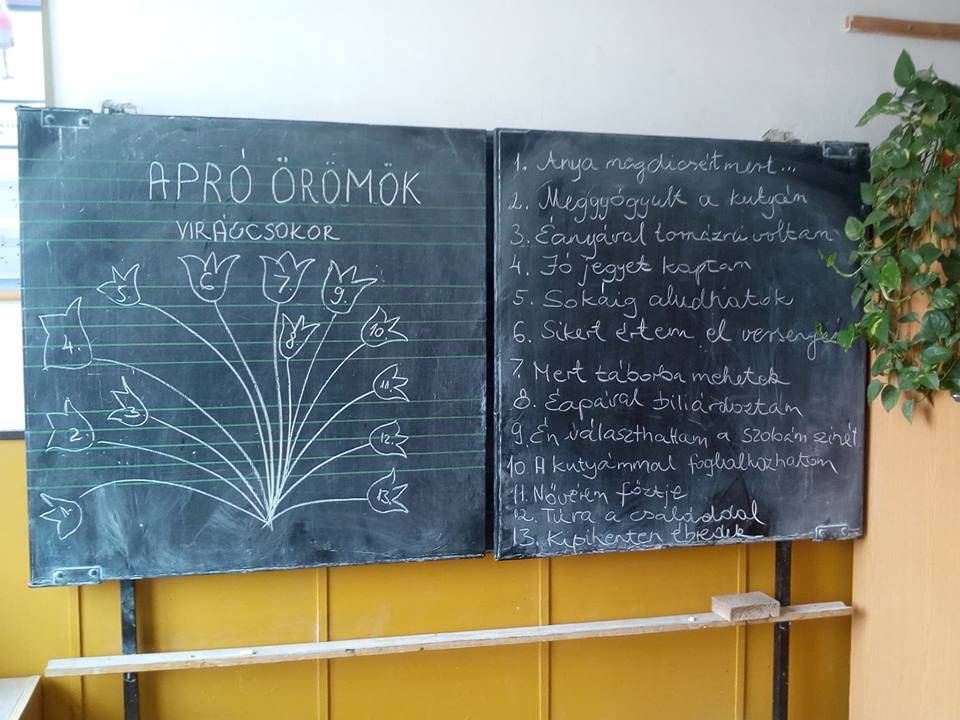 APRÓ ÖRÖMÖK
VIRÁGCSOKOR
1.
2.
3.
4.
5.
6.
7.
8.
9.
10.
11.
12.
13.
1. Anya magdicsért mert...
2. Meggyógyult a kutyám
3. Éanyával tomázni voltam
4. Jó jegyet kaptam
5. Sokáig aludhatok
6. Sikert értem el
7. Mert táborba mehetek
8. Éapával biliárdoztam
9. Én választhattam a szobám színét
10. A kutyámmal foglalkozhatom
11. Nővérem főztje
12. Túra a családdal
13. Kipihenten ébredek